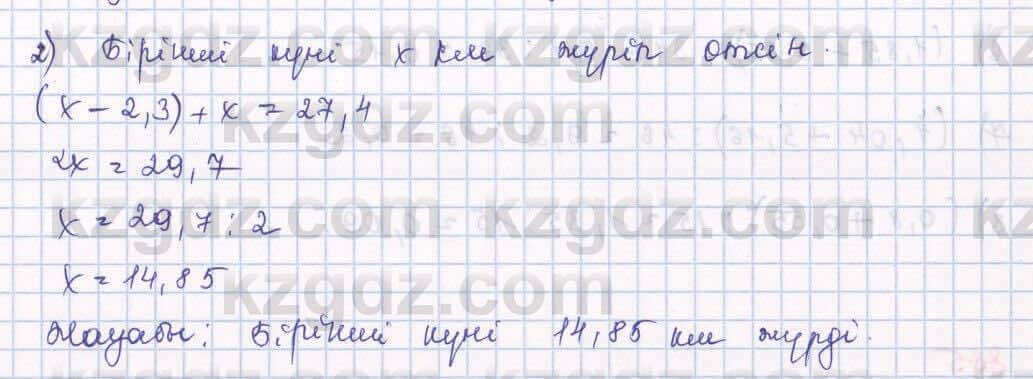 2) Бірінші күні x км жүріп өтсін.
(x - 2,3) + x = 27,4
2x = 29,7
x = 29,7 : 2
x = 14,85
Жауабы: Бірінші күні 14,85 км жүрді.
kzgdz.com